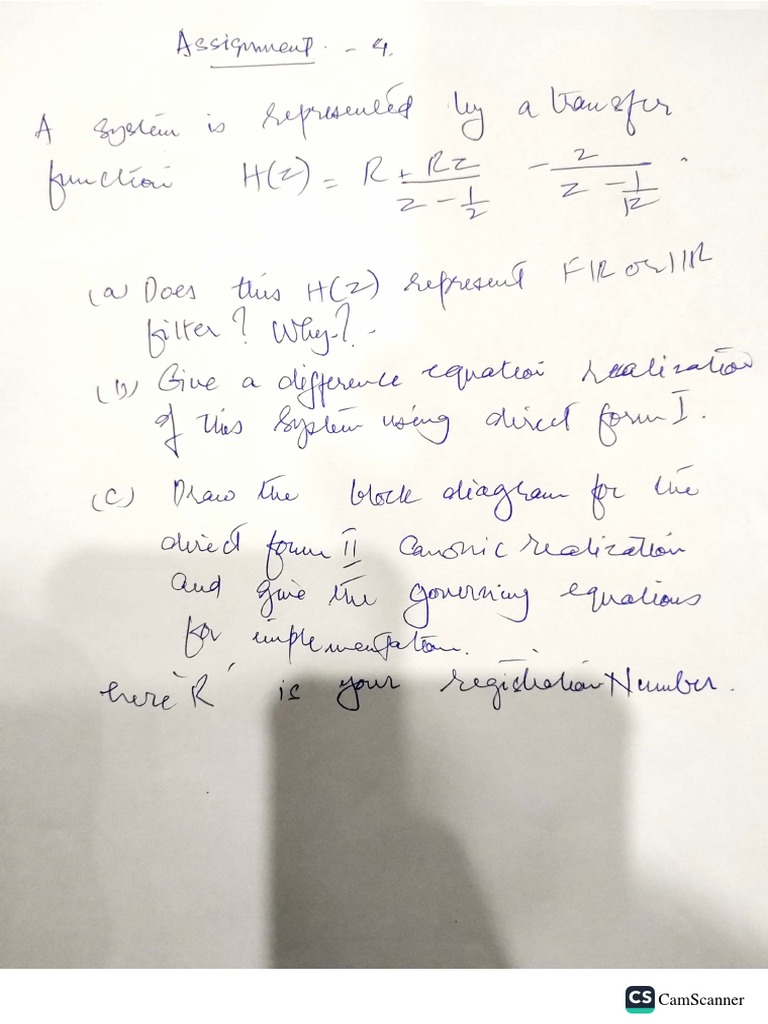 Assignment - 4.
A system is represented by a transfer
function H(z) = R + Rz / z - 1/2 - z / z - 1/12 .
(a) Does this H(z) represent FIR or IIR
filter? Why?
(b) Give a difference equation realization
of this system using direct form I.
(c) Draw the block diagram for the
direct form II canonic realization
and give the governing equations
for implementation.
here 'R' is your registration Number.
CS CamScanner